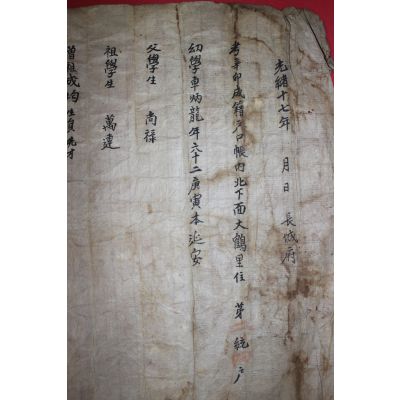 光緖十七年 月 日 長城府
考辛卯成籍戶口帳內北下面大鶴里住 第 統 戶
幼學車炳龍年六十二庚寅本延安
父學生 尙祿
祖學生 萬運
曾祖成均生員